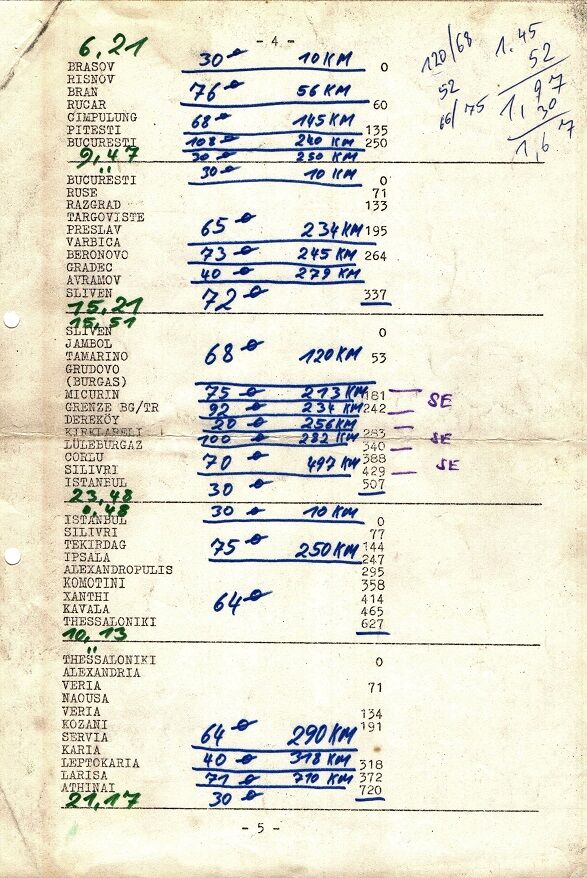 - 4 -
6,21
30 ⌀ 10 KM
BRASOV 0
RISNOV
BRAN 76 ⌀ 56 KM
RUCAR 60
CIMPULUNG 68 ⌀ 145 KM
PITESTI 135
BUCURESTI 108 ⌀ 240 KM 250
9,47 30 ⌀ 250 KM
" 30 ⌀ 10 KM
BUCURESTI 0
RUSE 71
RAZGRAD 133
TARGOVISTE
PRESLAV 65 ⌀ 234 KM 195
VARBICA
BERONOVO 73 ⌀ 245 KM 264
GRADEC
AVRAMOV 40 ⌀ 279 KM
SLIVEN 72 ⌀ 337
15,21
15,51
SLIVEN 0
JAMBOL
TAMARINO 68 ⌀ 120 KM 53
GRUDOVO
(BURGAS)
MICURIN 75 ⌀ 213 KM 181 SE
GRENZE BG/TR 92 ⌀ 234 KM 242
DEREKÖY 20 ⌀ 256 KM
KIRKLARELI 283
LÜLEBURGAZ 100 ⌀ 282 KM 340 SE
CORLU 388
SILIVRI 70 ⌀ 497 KM 429 SE
ISTANBUL 30 ⌀ 507
23,48
0,48 30 ⌀ 10 KM
ISTANBUL 0
SILIVRI 77
TEKIRDAG 144
IPSALA 75 ⌀ 250 KM 247
ALEXANDROPULIS 295
KOMOTINI 358
XANTHI 64 ⌀ 414
KAVALA 465
THESSALONIKI 627
10,13
"
THESSALONIKI 0
ALEXANDRIA
VERIA 71
NAOUSA
VERIA 134
KOZANI 191
SERVIA 64 ⌀ 290 KM
KARIA
LEPTOKARIA 40 ⌀ 318 KM 318
LARISA 71 ⌀ 710 KM 372
ATHINAI 30 ⌀ 720
21,17
- 5 -
120/68
52
1.45
52
1,97
30
1,67